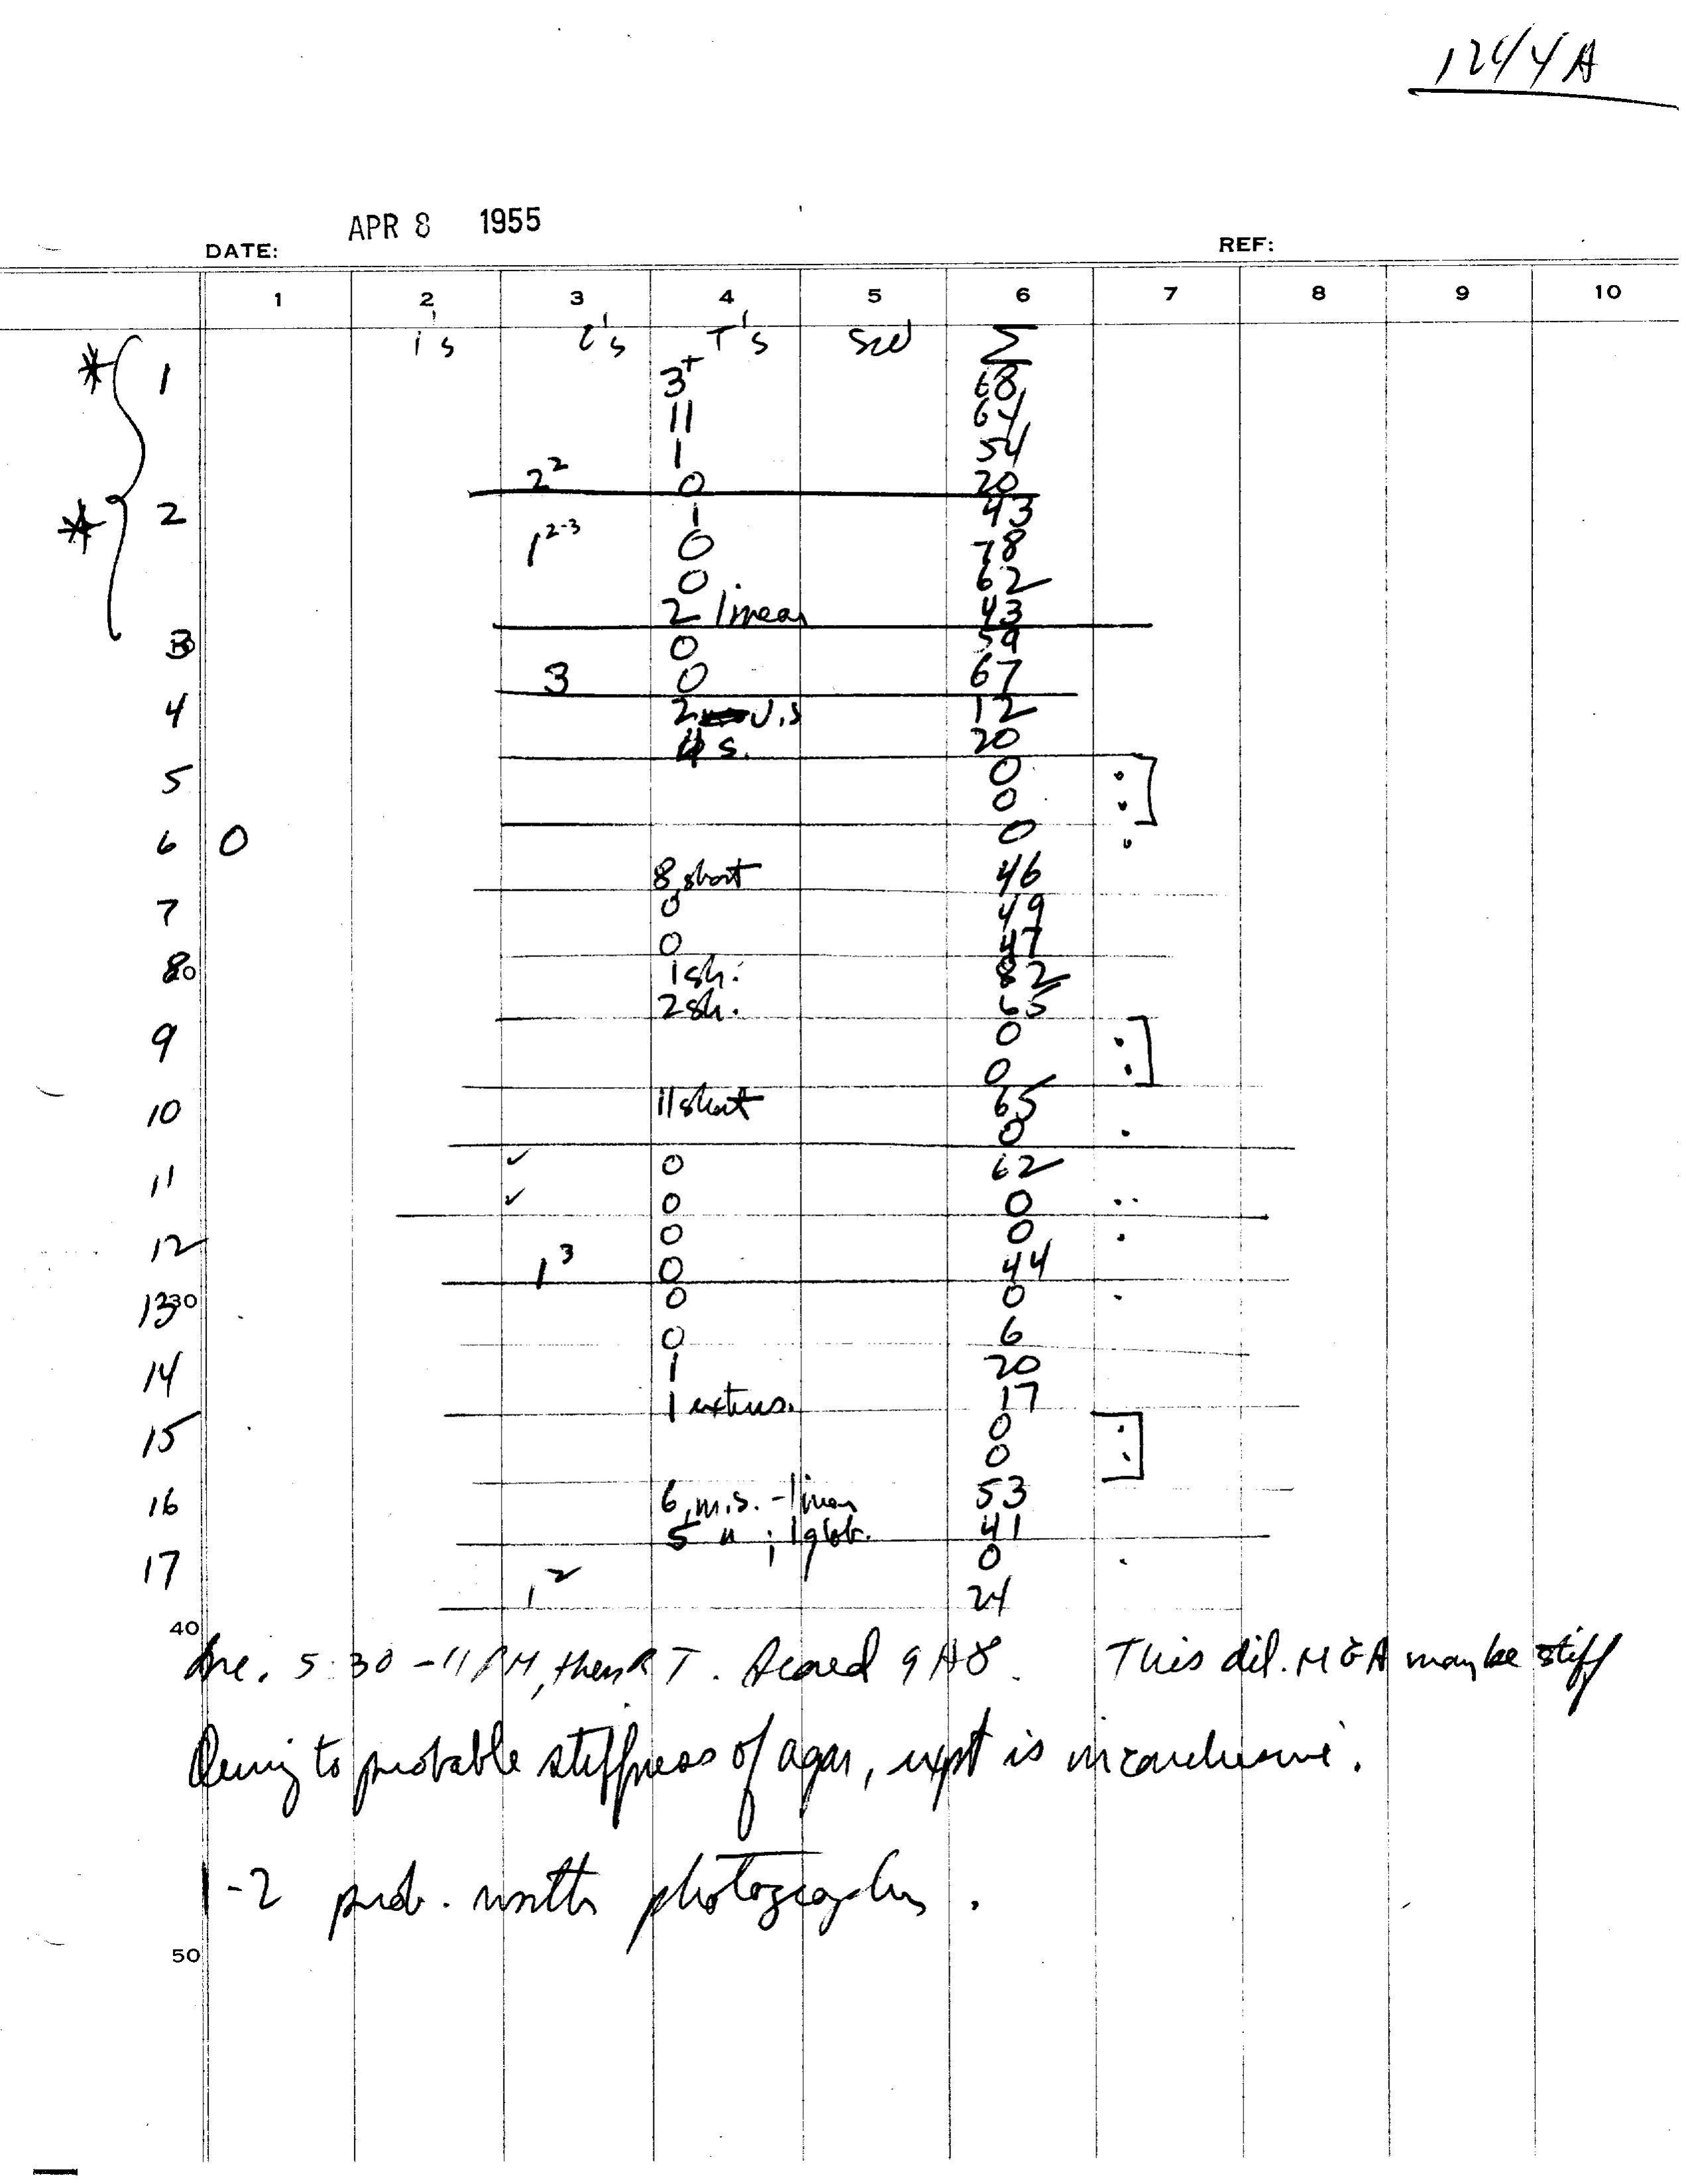 1244A
APR 8 1955
DATE: REF:
1 2 3 4 5 6 7 8 9 10
i's T's Σ
* 1 3+ 68
11 64
1 54
2² 0 20
* 2 1 43
1²⁻³ 0 78
0 62
2 linear 43
3 0 59
3 0 67
4 2 v.s 12
s. 20
5 0 .
0 .
6 0 0 .
8 short 46
7 0 49
0 47
8 1 sh. 82
2 sh. 65
9 0 .
0 .
10 11 short 65
0 .
11 ✓ 0 62
✓ 0 0 . .
12 0 0 .
1³ 0 44
13 30 0 0 .
0 6
14 1 20
1 17
15 0 .
0 .
16 6 m.s. - linear 53
5 " ; 1 glob. 41
17 0 .
1² 24
40
Inc. 5:30 - 11 PM, then RT. Scored 9 A8. This dil. MGA may be stiff
Owing to probable stiffness of agar, expt is inconclusive.
1-2 prob. worth photographing.
50